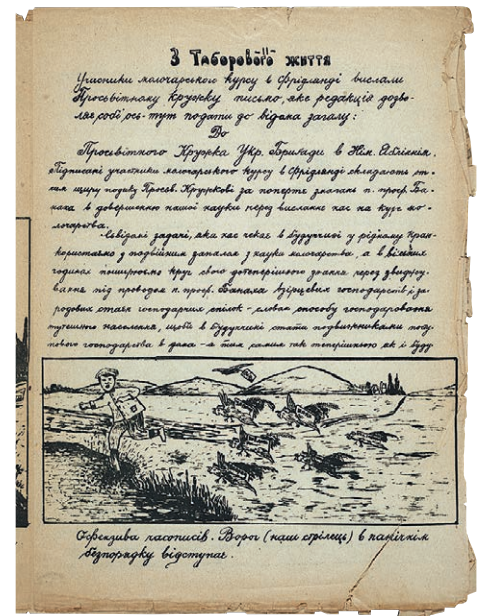 З Таборового життя
Учасники молочарського курсу в Фрідлянді вислали
Просвітному Кружку письмо, яке редакція дозво-
ляє собі ось-тут подати до відома загалу:
До
Просвітного Кружка Укр. Бригади в Нім. Яблічнім.
Підписані учасники молочарського курсу в Фрідлянді складають от-
сим щиру подяку Просв. Кружкові за попертє знань п. проф. Ба-
наха в довершенню нашої науки перед висланнє нас на курс мо-
лочарства.
Свідомі задачі, яка нас чекає в будуччині у ріднім Краю
користаємо з подвійним запалом з науки молочарства, а в вільних
годинах поширюємо круг свого дотеперішнього знання через звиджу-
ваннє під проводом п. проф. Банаха взірцевих господарств і за-
родових стаєн господарчих спілок - словом способу господаровання
тутешнього населення, щоби в будуччині стати подвижниками посту-
пового господарства в дома - а тим самим так теперішною як і буду
Офензива часописів. Ворог (наш стрілець) в панічнім
безпорядку відступає.